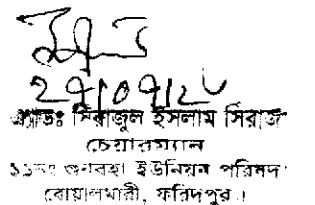 ২৭/০৭/২৮
এ্যাডঃ সিরাজুল ইসলাম সিরাজ
চেয়ারম্যান
১১নং গুনবহা ইউনিয়ন পরিষদ
বোয়ালমারী, ফরিদপুর।